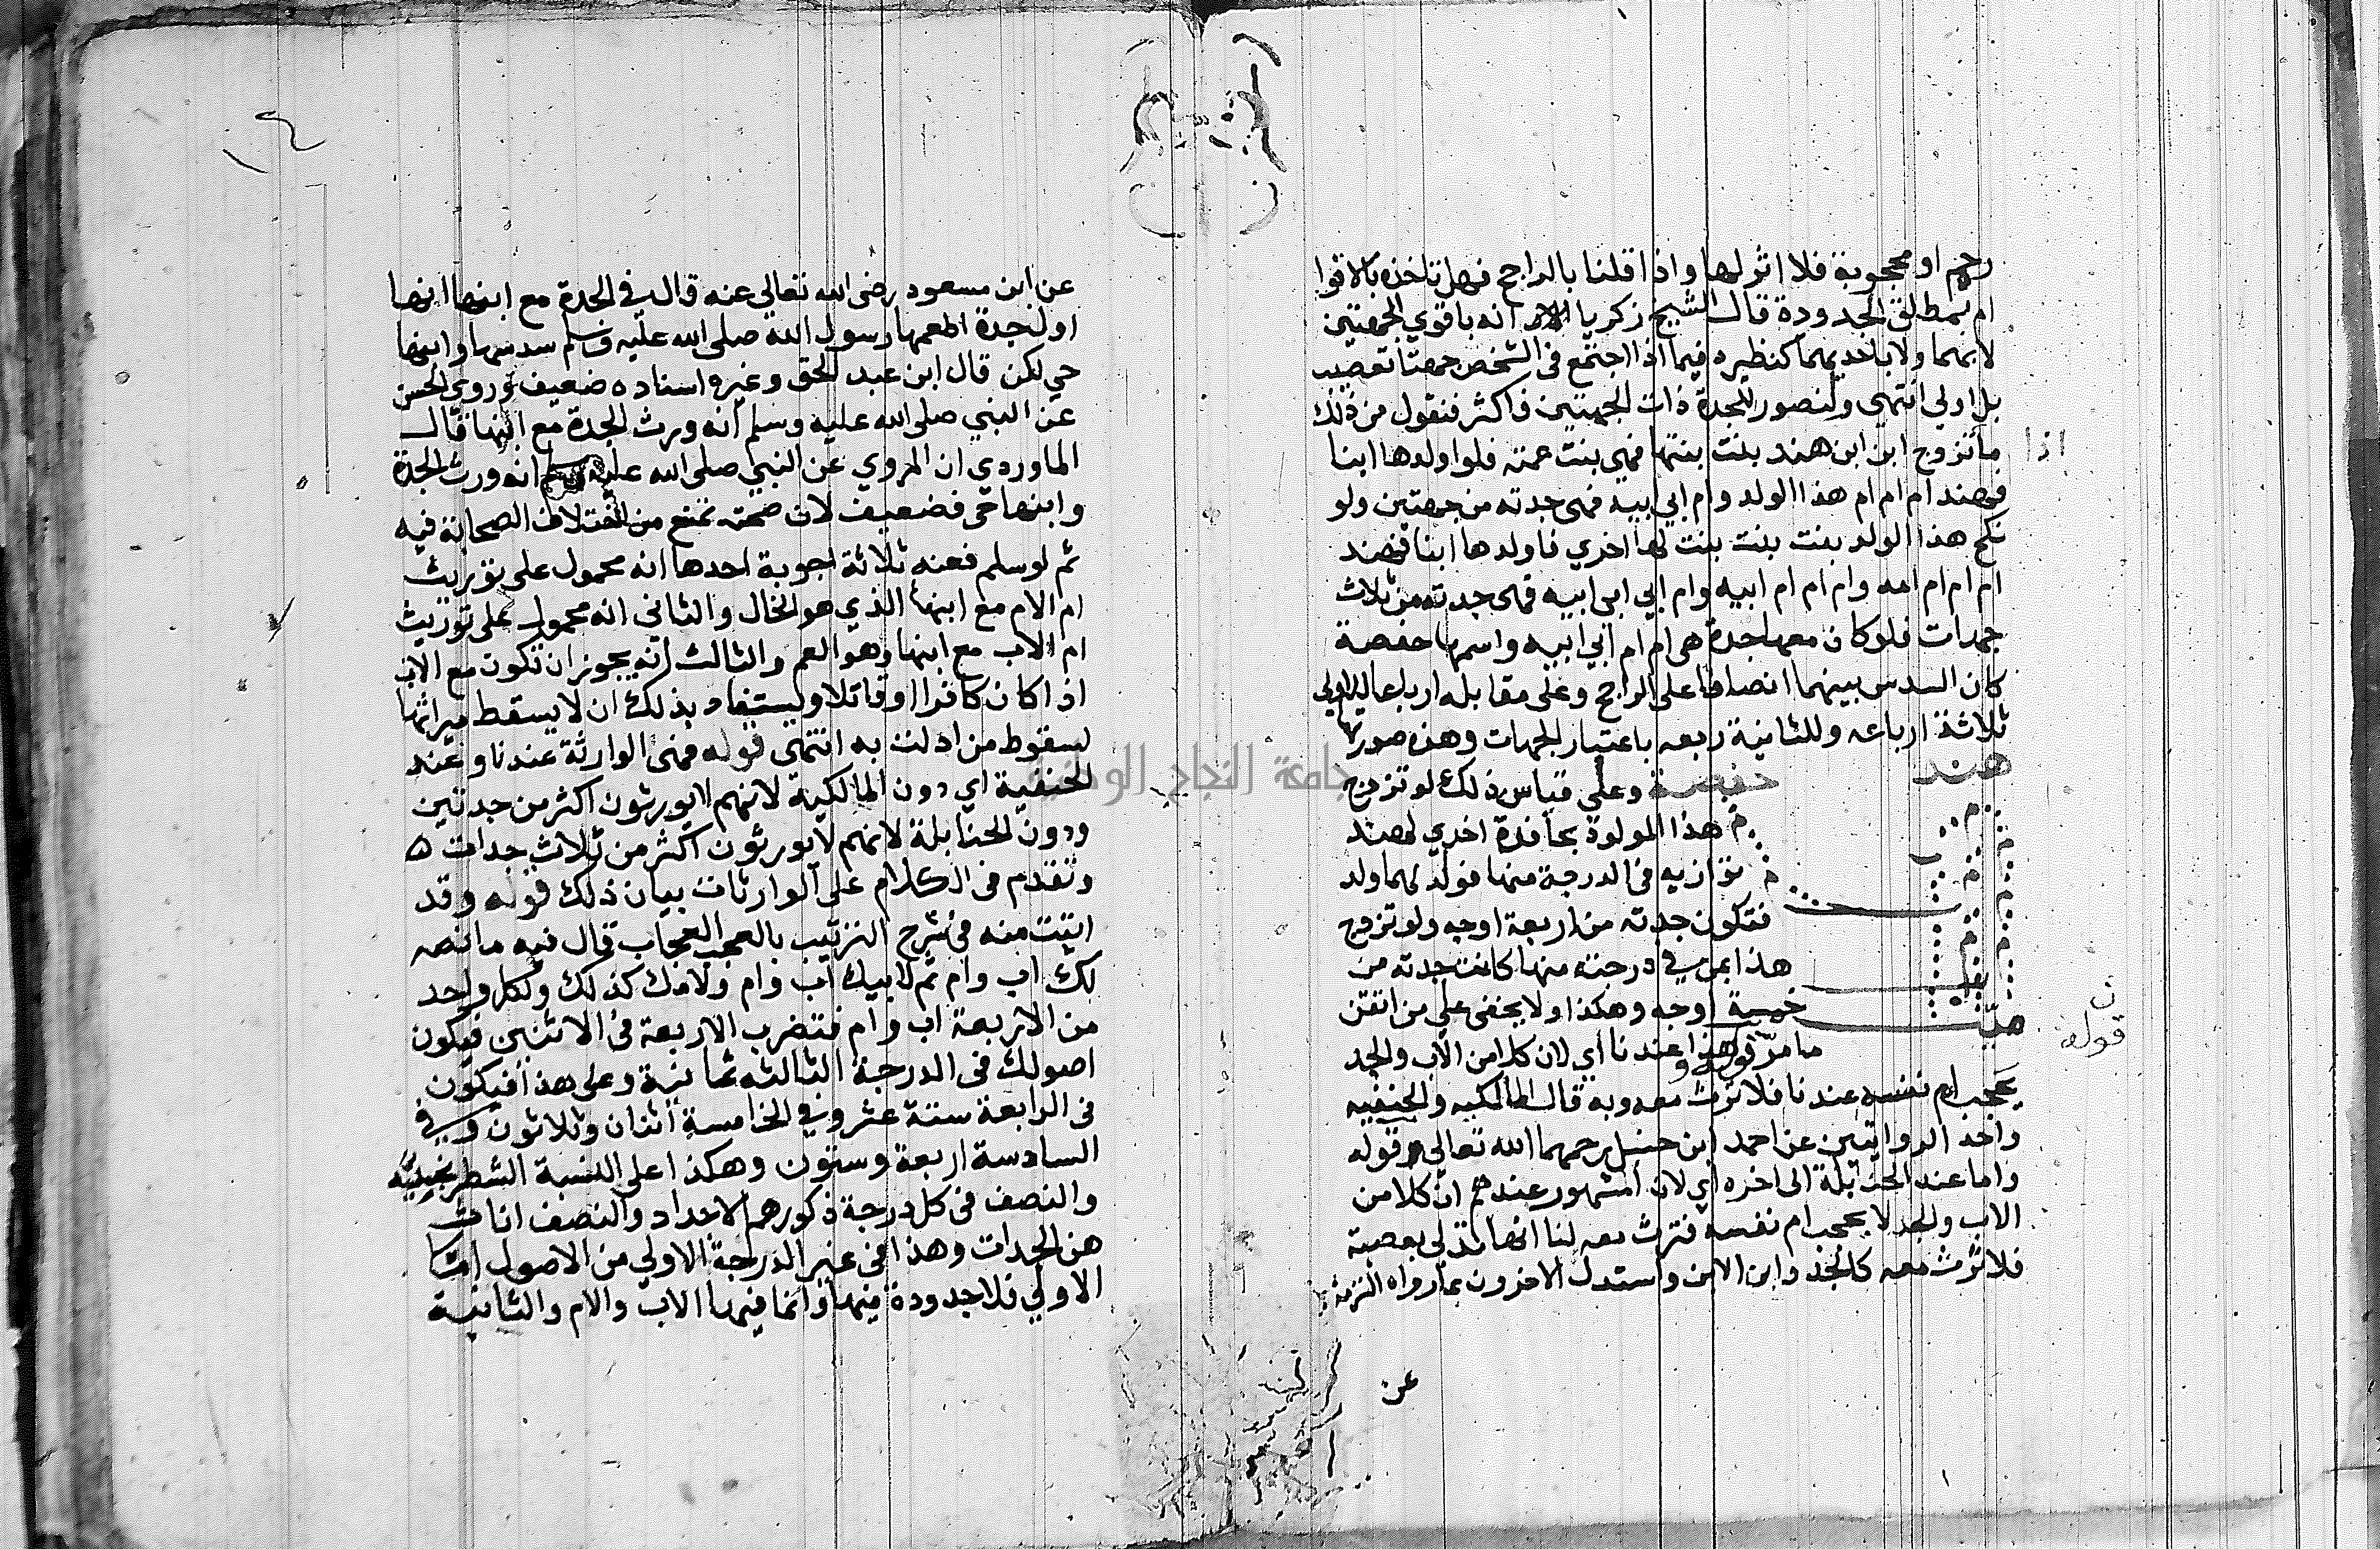 رحم او محجوبة فلا اثر لها واذا قلنا بالراجح فهل تاخذه بالاقوا
ام بمطلق الجدودة قال الشيخ زكريا انه باقوي الجهتين
لا بهما ولا باحديهما كنظيره فيما اذا اجتمع في الشخص جهتا تعصيب
بل اولي انتهي ولنصور للجدة ذات الجهتين فاكثر فنقول من ذلك
اذا
ما تزوج ابن ابن هند بنت بنتها فهي بنت عمته فلو اولدها ابنا
فهند ام ام ام هذا الولد وام ابي ابيه فهي جدته من جهتين ولو
نكح هذا الولد بنت بنت بنت لها اخري فاولدها ابنا فهند
ام ام ام امه وام ام ام ابيه وام ابي ابي ابيه فهي جدته من ثلاث
جهات فلو كان معها جدة هي ام ام ابي ابيه واسمها حفصة
كان السدس بينهما انصافا على الراجح وعلى مقابله ارباعا للاولي
ثلاثة ارباعه وللثانية ربعه باعتبار الجهات وهذه صورتها
هند حفصة وعلي قياس ذلك لو تزوج
هذا المولود بحافدة اخري لهند
توازيه في الدرجة منها فولد لهما ولد
فتكون جدته من اربعة اوجه ولو تزوج
هذا بمن في درجته منها كانت جدته من
خمسة اوجه وهكذا ولا يخفى علي من اتقن
قوله
ما مر قوله هذا عندنا أي لان كلا من الاب والجد
يحجب ام نفسه عندنا فلا ترث معه وبه قال المالكيه والحنفيه
واحد الروايتين عن احمد ابن حنبل رحمهما الله تعالي قوله
واما عند الحنابلة الى اخره اي لان المشهور عندهم ان كلا من
الاب والجد لا يحجب ام نفسه فترث معه لنا انها تدلي بعصبة
فلا ترث معه كالجد وابن الابن واستدل الاخرون بما رواه الترمذي
عن
عن ابن مسعود رضى الله تعالي عنه قال في الجدة مع ابنها انها
اول جدة اطعمها رسول الله صلى الله عليه وسلم سدسها وابنها
حي لكن قال ابن عبد الحق وغيره اسناده ضعيف وروي الحسن
عن النبي صلى الله عليه وسلم انه ورث الجدة مع ابنها قال
الماوردي ان المروي عن النبي صلى الله عليه وسلم انه ورث الجدة
وابنها حي فضعيف لان صحته تمنع من اختلاف الصحابة فيه
ثم لو سلم فعنه ثلاثة اجوبة احدها انه محمول على توريث
ام الام مع ابنها الذي هو الخال والثاني انه محمول على توريث
ام الاب مع ابنها وهو العم والثالث انه يجوز ان تكون مع الاب
اذا كان كافرا او قاتلا وليستفاد بذلك ان لا يسقط ميراثها
لسقوط من ادلت به انتهي قوله فهى الوارثة عندنا وعند
الحنفية اي دون المالكية لانهم لا يورثون اكثر من جدتين
ودون الحنابلة لانهم لا يورثون اكثر من ثلاث جدات ه
وتقدم في الكلام على الوارثات بيان ذلك قوله وقد
اتيت منه في شرح الترتيب بالعجب العجاب قال فيه ما نصه
لك اب وام ثم لابيك اب وام ولامك كذلك ولكل واحد
من الاربعة اب وام فتضرب الاربعة في الاثنين فيكون
اصولك في الدرجة الثالثه ثمانية وعلى هذا فيكون
في الرابعة ستة عشر وفي الخامسة اثنان وثلاثون وفي
السادسة اربعة وستون وهكذا على النسبة الشطرنجيه
والنصف في كل درجة ذكورهم الاجداد والنصف اناث
هن الجدات وهذا في غير الدرجة الاولي من الاصول اما
الاولي فلا جدودة فيها وانما فيها الاب والام والثانية
جامعة النجاح الوطنية